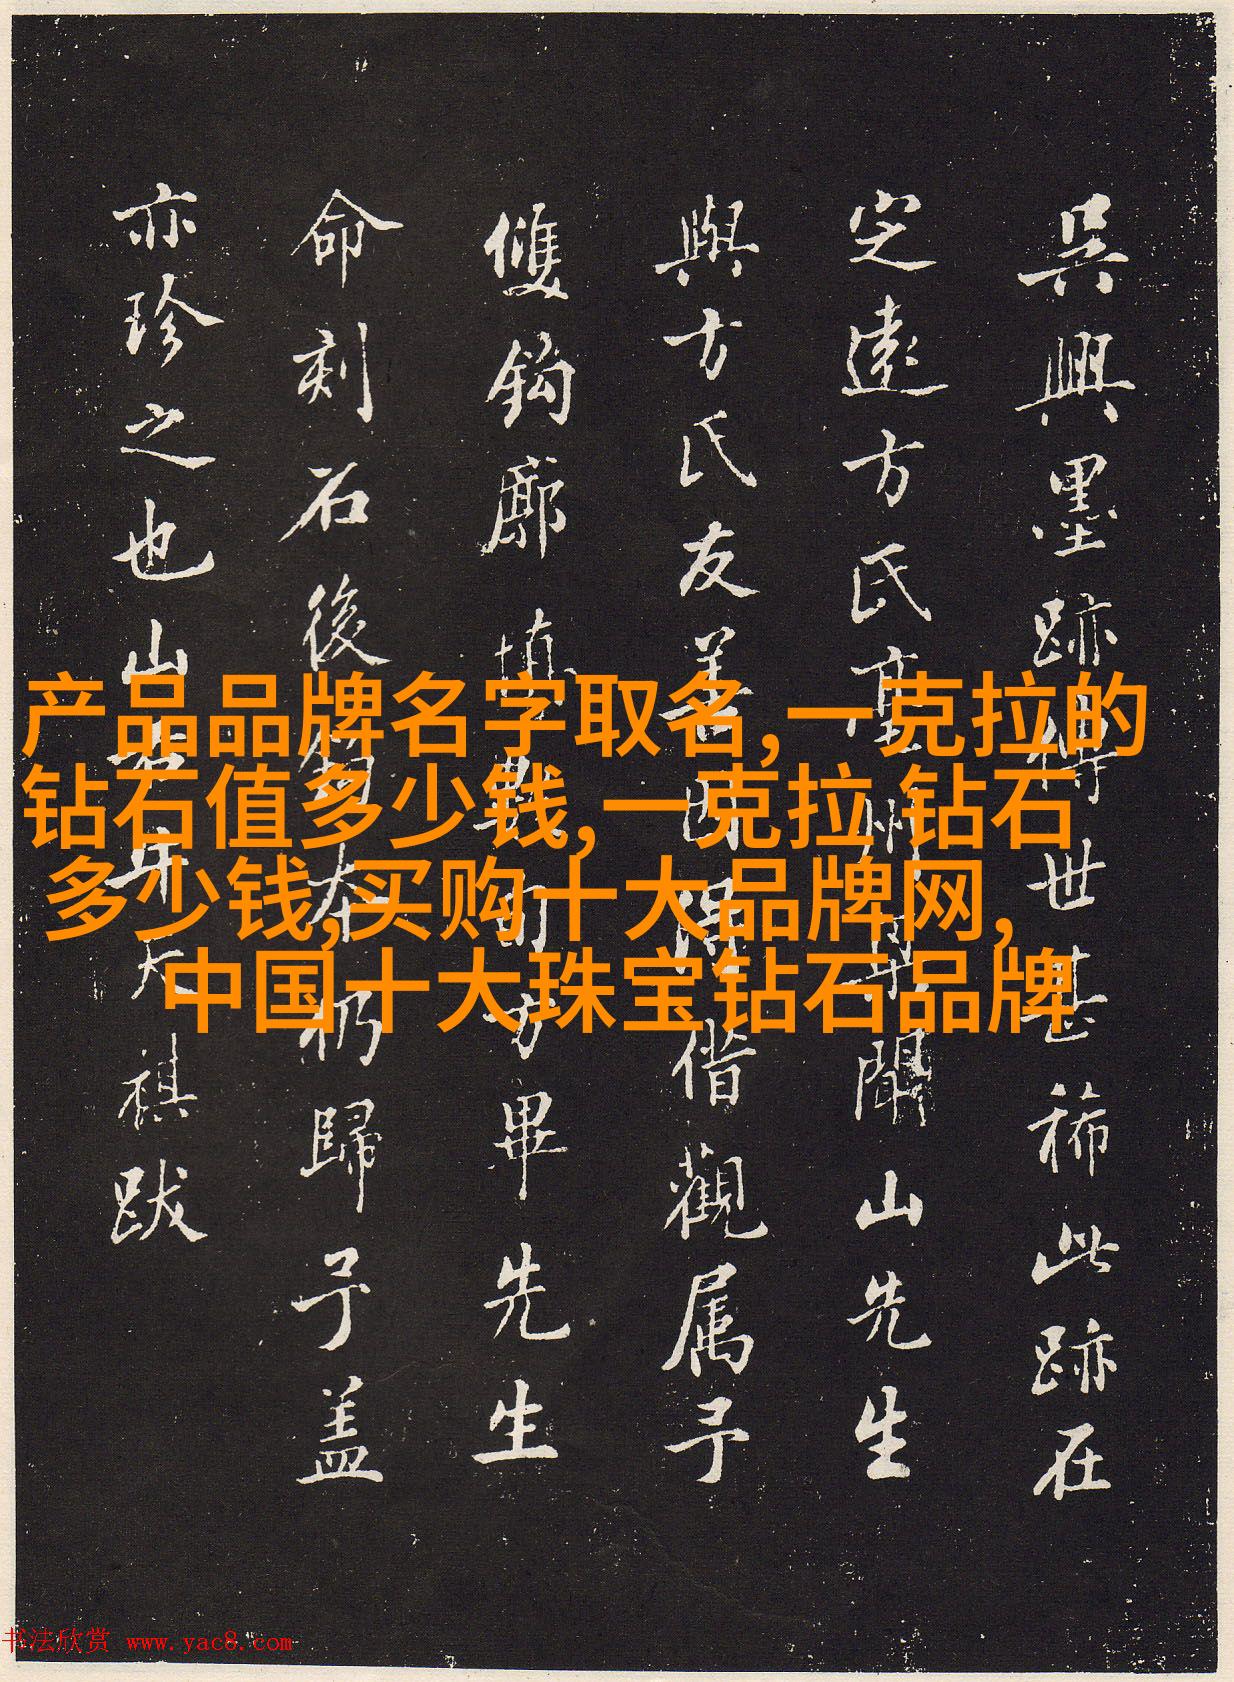 吳興墨跡世甚稀此跡在
定遠方氏聞山先生
與方氏友善因得借觀属予
雙鈎廓填方畢先生
命刻石後鈎本仍歸予盖
亦珍之也山祺跋
产品品牌名字取名,一克拉的
钻石值多少钱,一克拉 钻石
多少钱,买购十大品牌网,
中国十大珠宝钻石品牌
书法欣赏 www.yac8.com